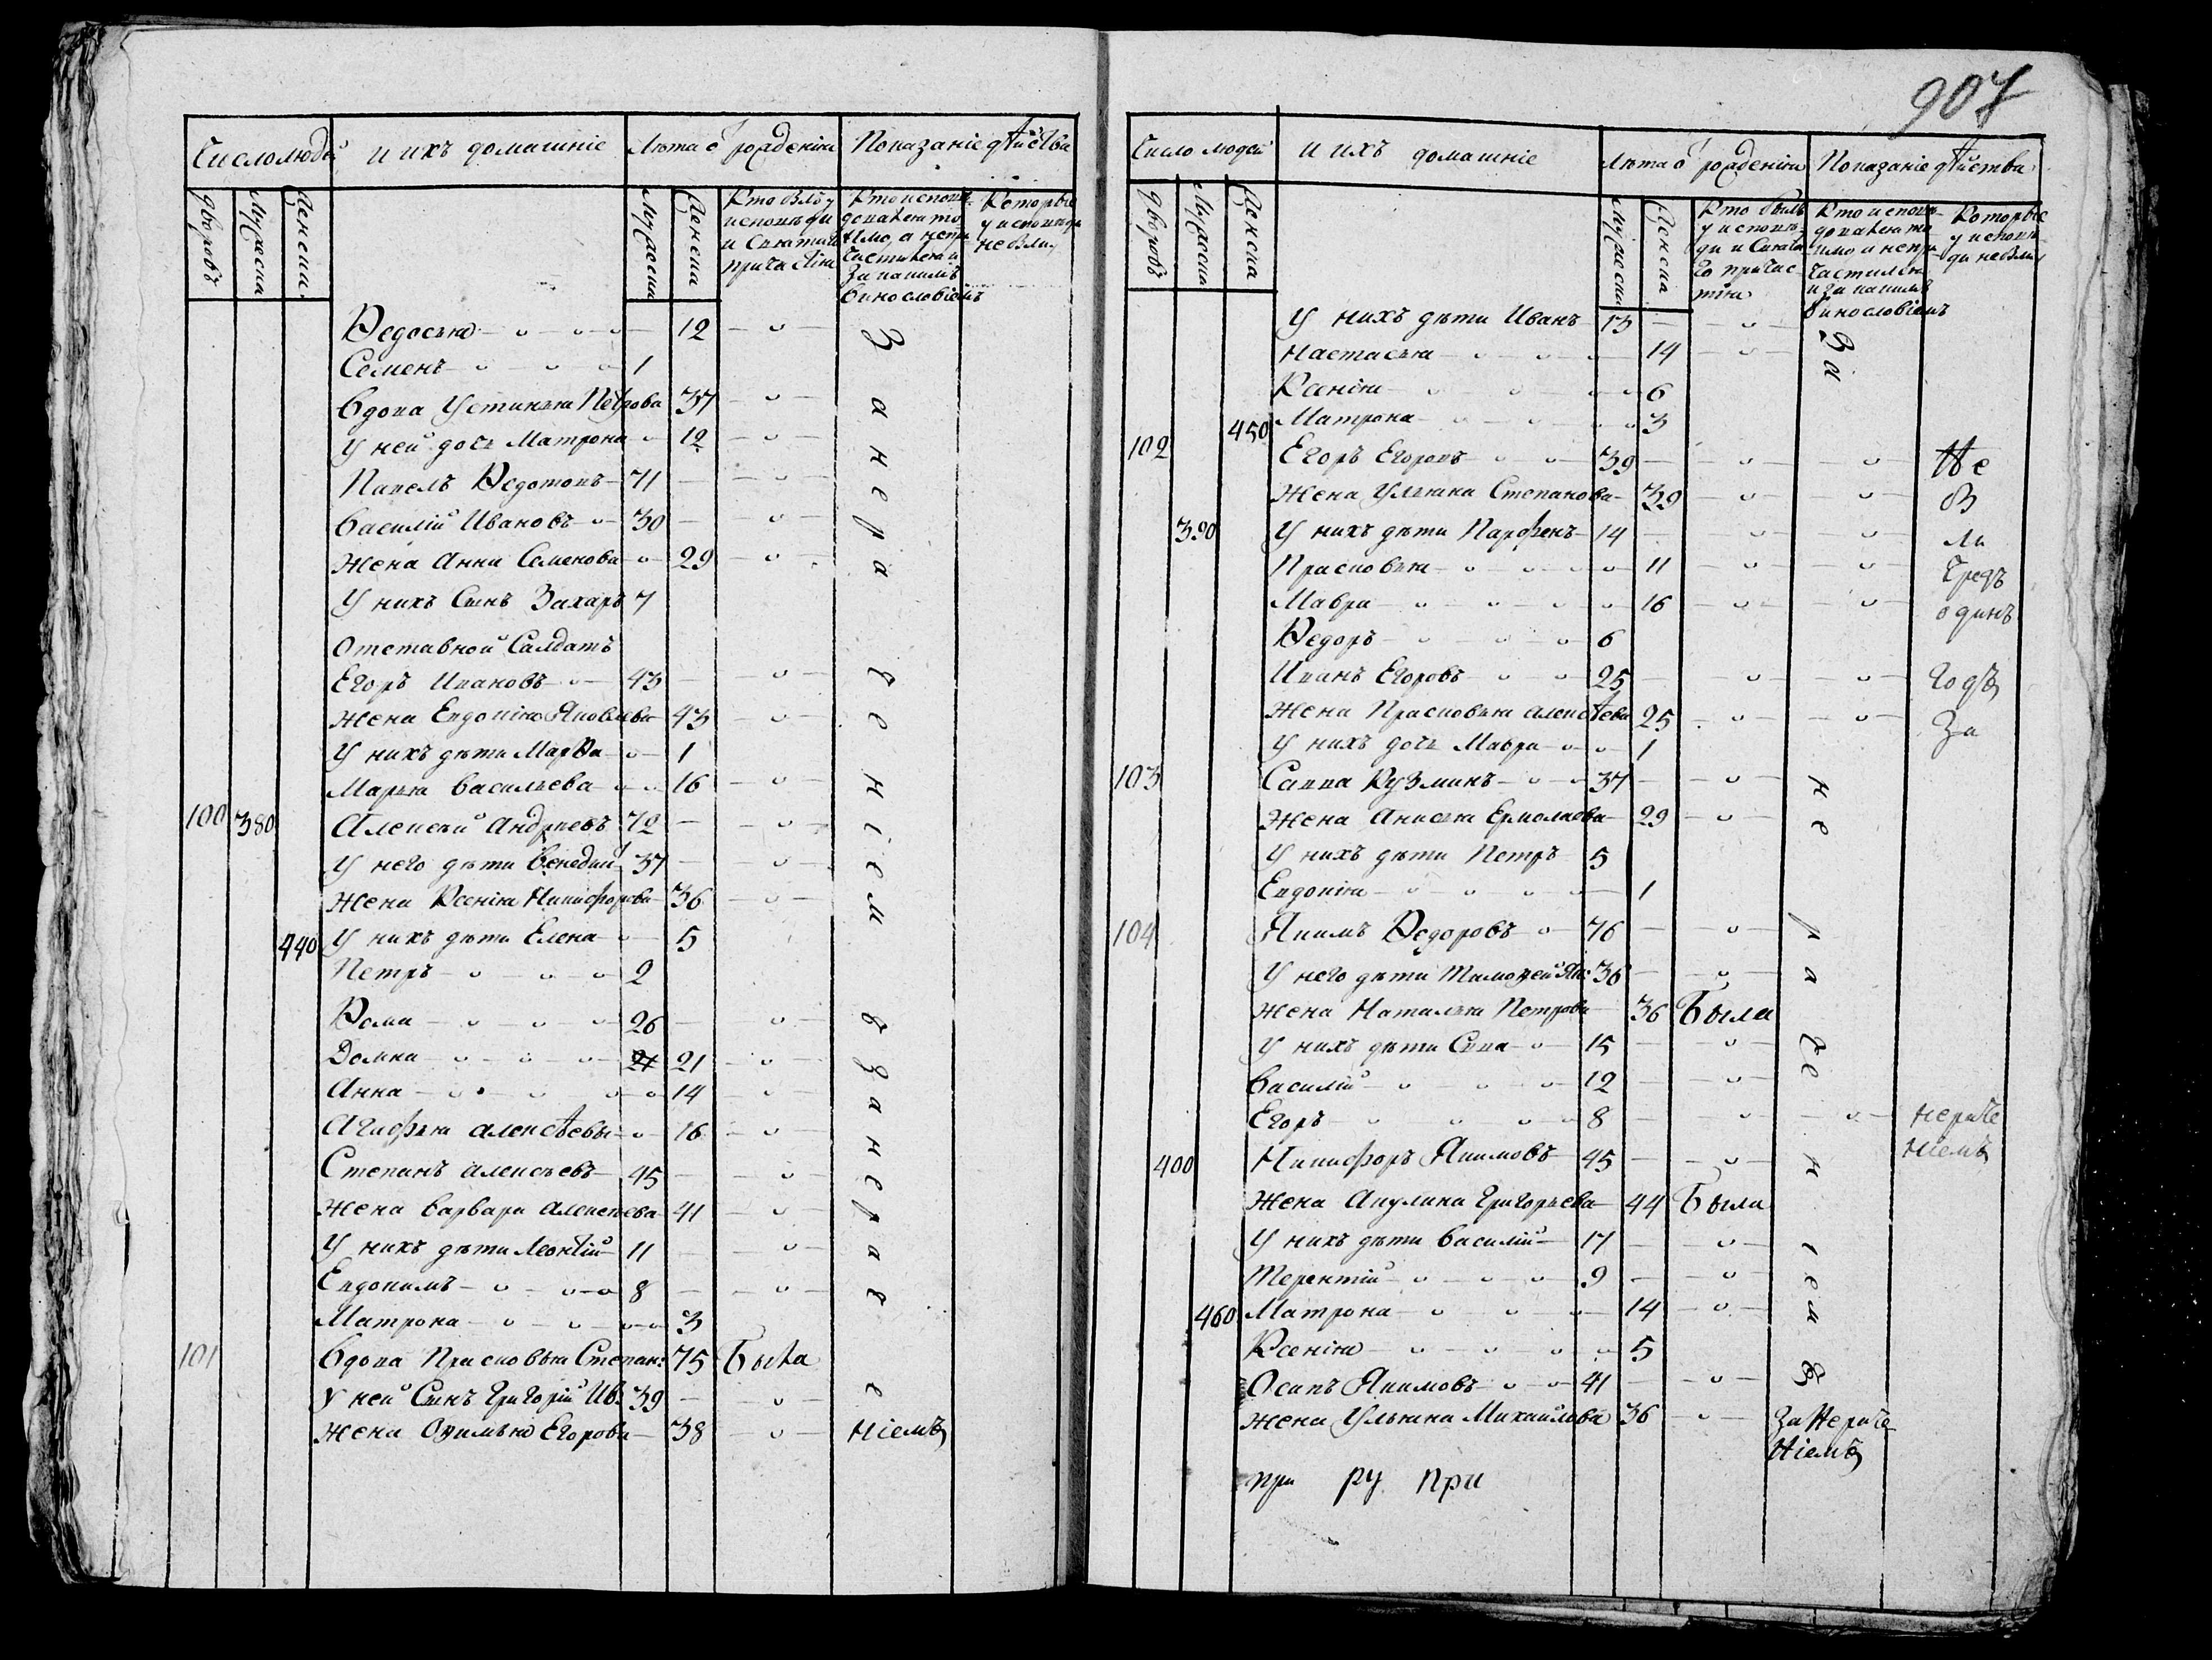 Число людей и ихъ домашніе Лѣта ѿ рожденія Показаніе дѣйства
дворовъ Мужеска Женска Мужеска Женска Кто былъ у исповѣди и Святаго причастія Кто исповѣдовался токмо, а не причастился и за какимъ винословіемъ Которые у исповѣди небыли
Ѳедосья 12
Семенъ 1
вдова Устинья Петрова 37
у ней дочь Матрона 12
Павелъ Ѳедотовъ 71
Василій Ивановъ 30
жена Анна Семенова 29
у нихъ Сынъ Захаръ 7
Отставной Салдатъ
Егоръ Ивановъ 43
жена Евдокія Яковлева 43
у нихъ дети Марѳа 1
Марья Васильева 16
100 380 Алексей Андреевъ 72
у него дѣти Венедик 37
жена Ксенія Никифорова 36
440 у нихъ дѣти Елена 5
Петръ 2
Ѳома 26
Домна 21 21
Анна 14
Агафья алексѣевы 16
Степанъ алексеевъ 45
жена Варвара алексеева 41
у нихъ дѣти Леонтій 11
Евдокимъ 8
Матрона 3
101 вдова Прасковья Степан: 75 Была
у ней Сынъ Григорій Ив: 39
жена Офимья Егорова 38
За нераченіем за нерачениемъ
907
Число людей и ихъ домашніе Лѣта ѿ рожденія Показаніе дѣйства
дворовъ Мужеска Женска Мужеска Женска Кто былъ у исповѣди и Святаго причастія Кто исповѣдовался токмо а непричастился и за какимъ винословіемъ Которые у исповѣди небыли
у нихъ дѣти Иванъ 13
Настасья 14
Ксенія 6
450 Матрона 3
102 Егоръ Егоровъ 39 Не
жена Ульяна Степанова 39 б
390 у нихъ дѣти Парфенъ 14 ли
Прасковья 11 Чрезъ
Мавра 16 одинъ
Ѳедоръ 6
Иванъ Егоровъ 25 Годъ
жена Прасковья алексѣева 25 За
у нихъ дочь Мавра 1
103 Савва Кузминъ 37
жена Анисья Ермолаева 29
у нихъ дѣти Петръ 5
Евдокія 1
104 Якимъ Ѳедоровъ 76
у него дѣти Тимоѳей Як: 36
жена Наталья Петрова 36 Была
у нихъ дѣти Сава 15
Василій 12
Егоръ 8 нераче
400 Никифоръ Якимовъ 45 ніемъ
жена Акулина Григорьева 44 Была
у нихъ дѣти Василий 17
Терентий 9
460 Матрона 14
Ксенія 5
Осипъ Якимовъ 41
жена Ульяна Михаилова 36 За нераче
ніемъ
За нераченіемъ
при ру при